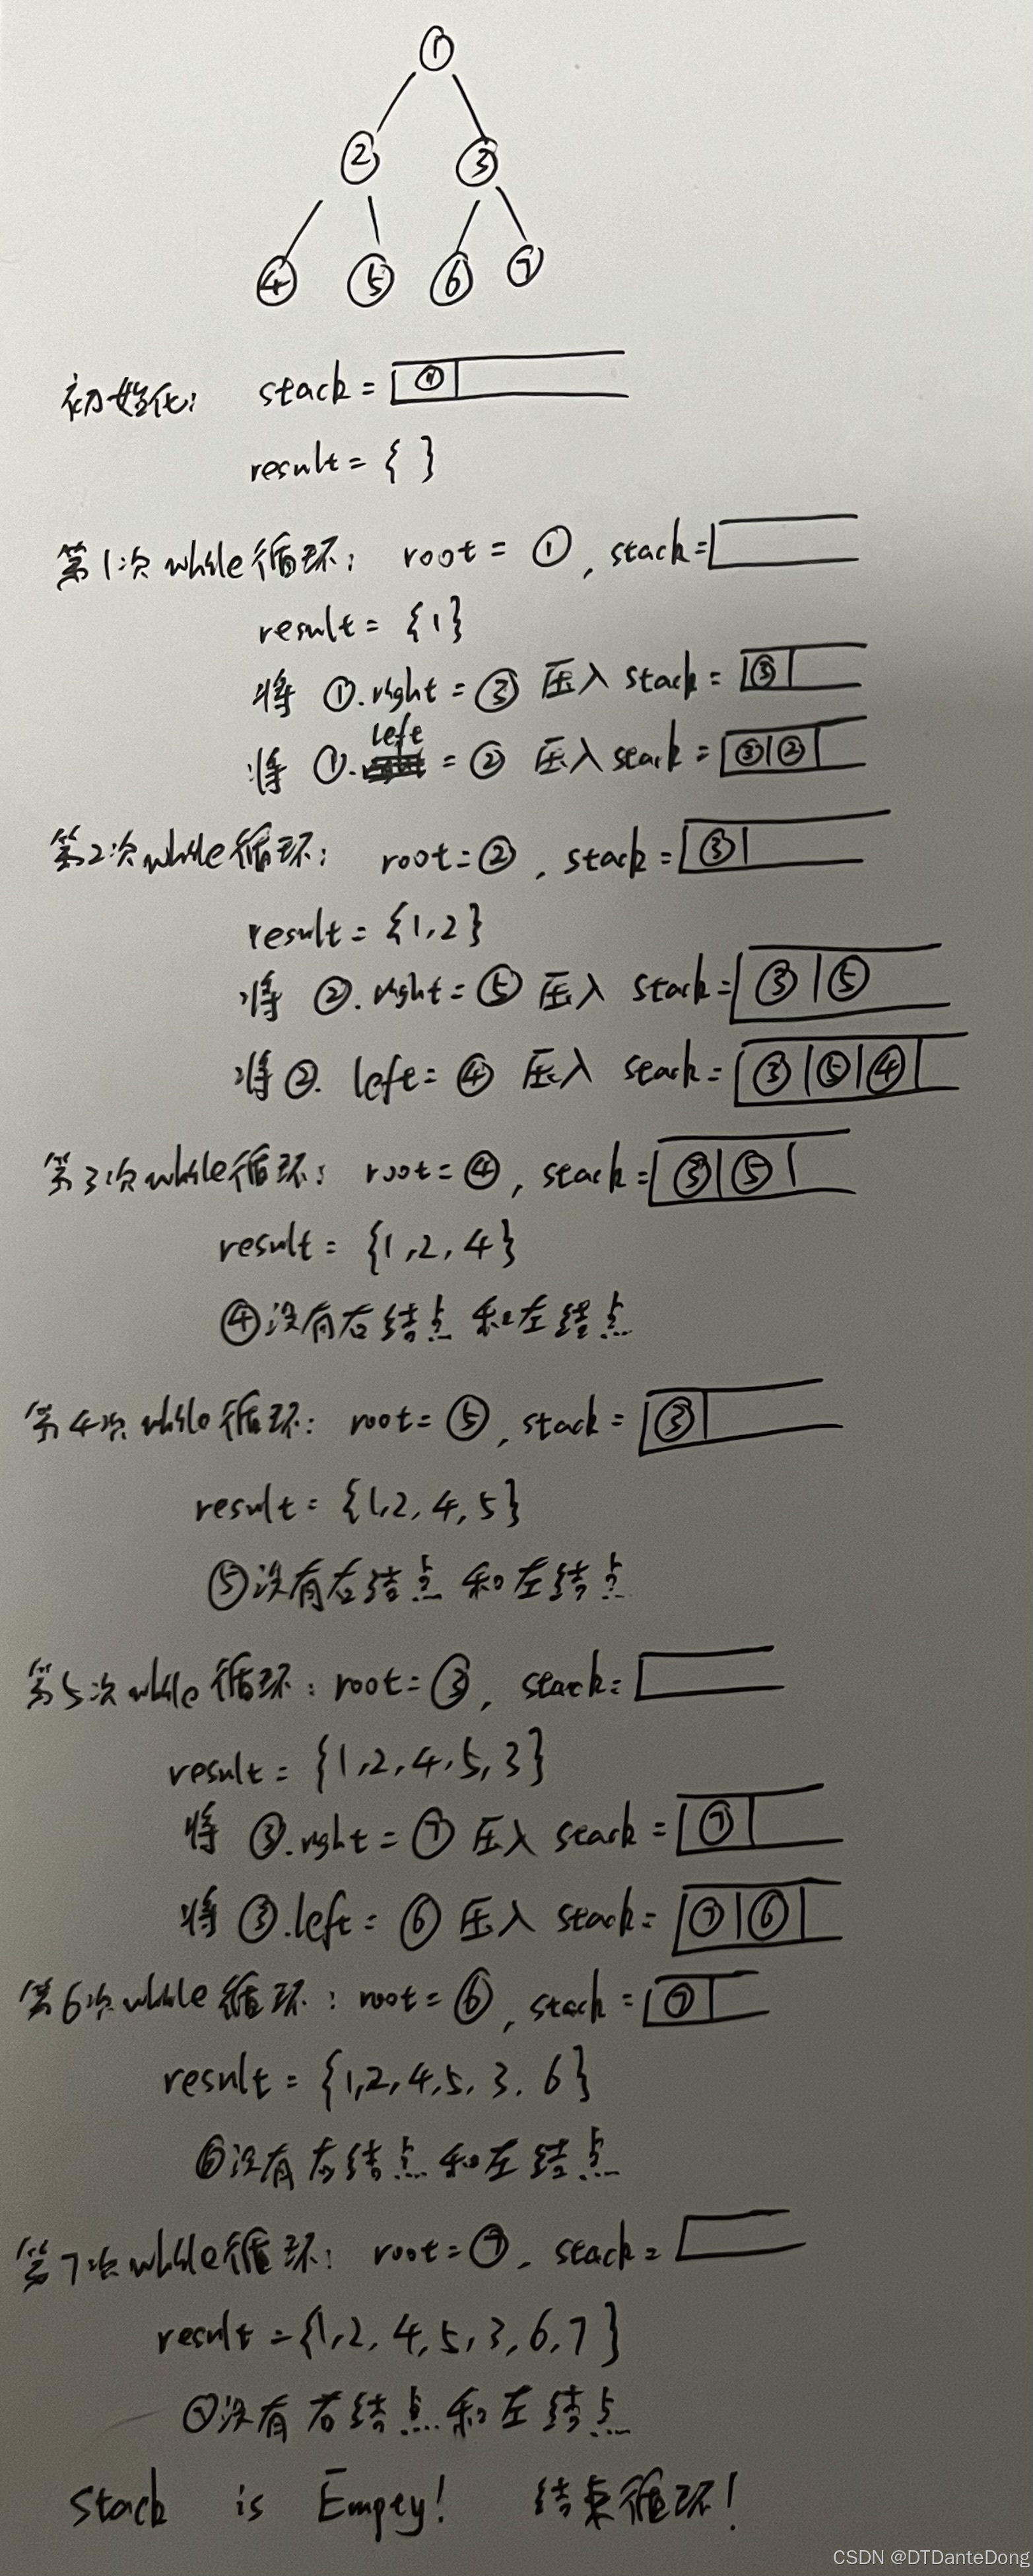 ①
② ③
④ ⑤ ⑥ ⑦
初始化: stack = ①
result = { }
第1次while循环: root = ①, stack=
result = {1}
将 ①.right = ③ 压入 stack = ③
left
将 ①. = ② 压入 stack = ③ ②
第2次while循环: root=②, stack = ③
result = {1,2}
将 ②.right = ⑤ 压入 stack = ③ ⑤
将 ②. left = ④ 压入 stack = ③ ⑤ ④
第3次while循环: root = ④, stack = ③ ⑤
result = {1,2,4}
④没有右结点 和左结点
第4次while循环: root = ⑤, stack = ③
result = {1,2,4,5}
⑤没有右结点 和左结点
第5次while循环: root = ③, stack =
result = {1,2,4,5,3}
将 ③.right = ⑦ 压入 stack = ⑦
将 ③.left = ⑥ 压入 stack = ⑦ ⑥
第6次while循环: root = ⑥, stack = ⑦
result = {1,2,4,5,3,6}
⑥没有右结点 和左结点
第7次while循环: root=⑦, stack =
result ={1,2,4,5,3,6,7}
⑦没有右结点 和左结点
stack is Empty! 结束循环!
CSDN @DTDanteDong